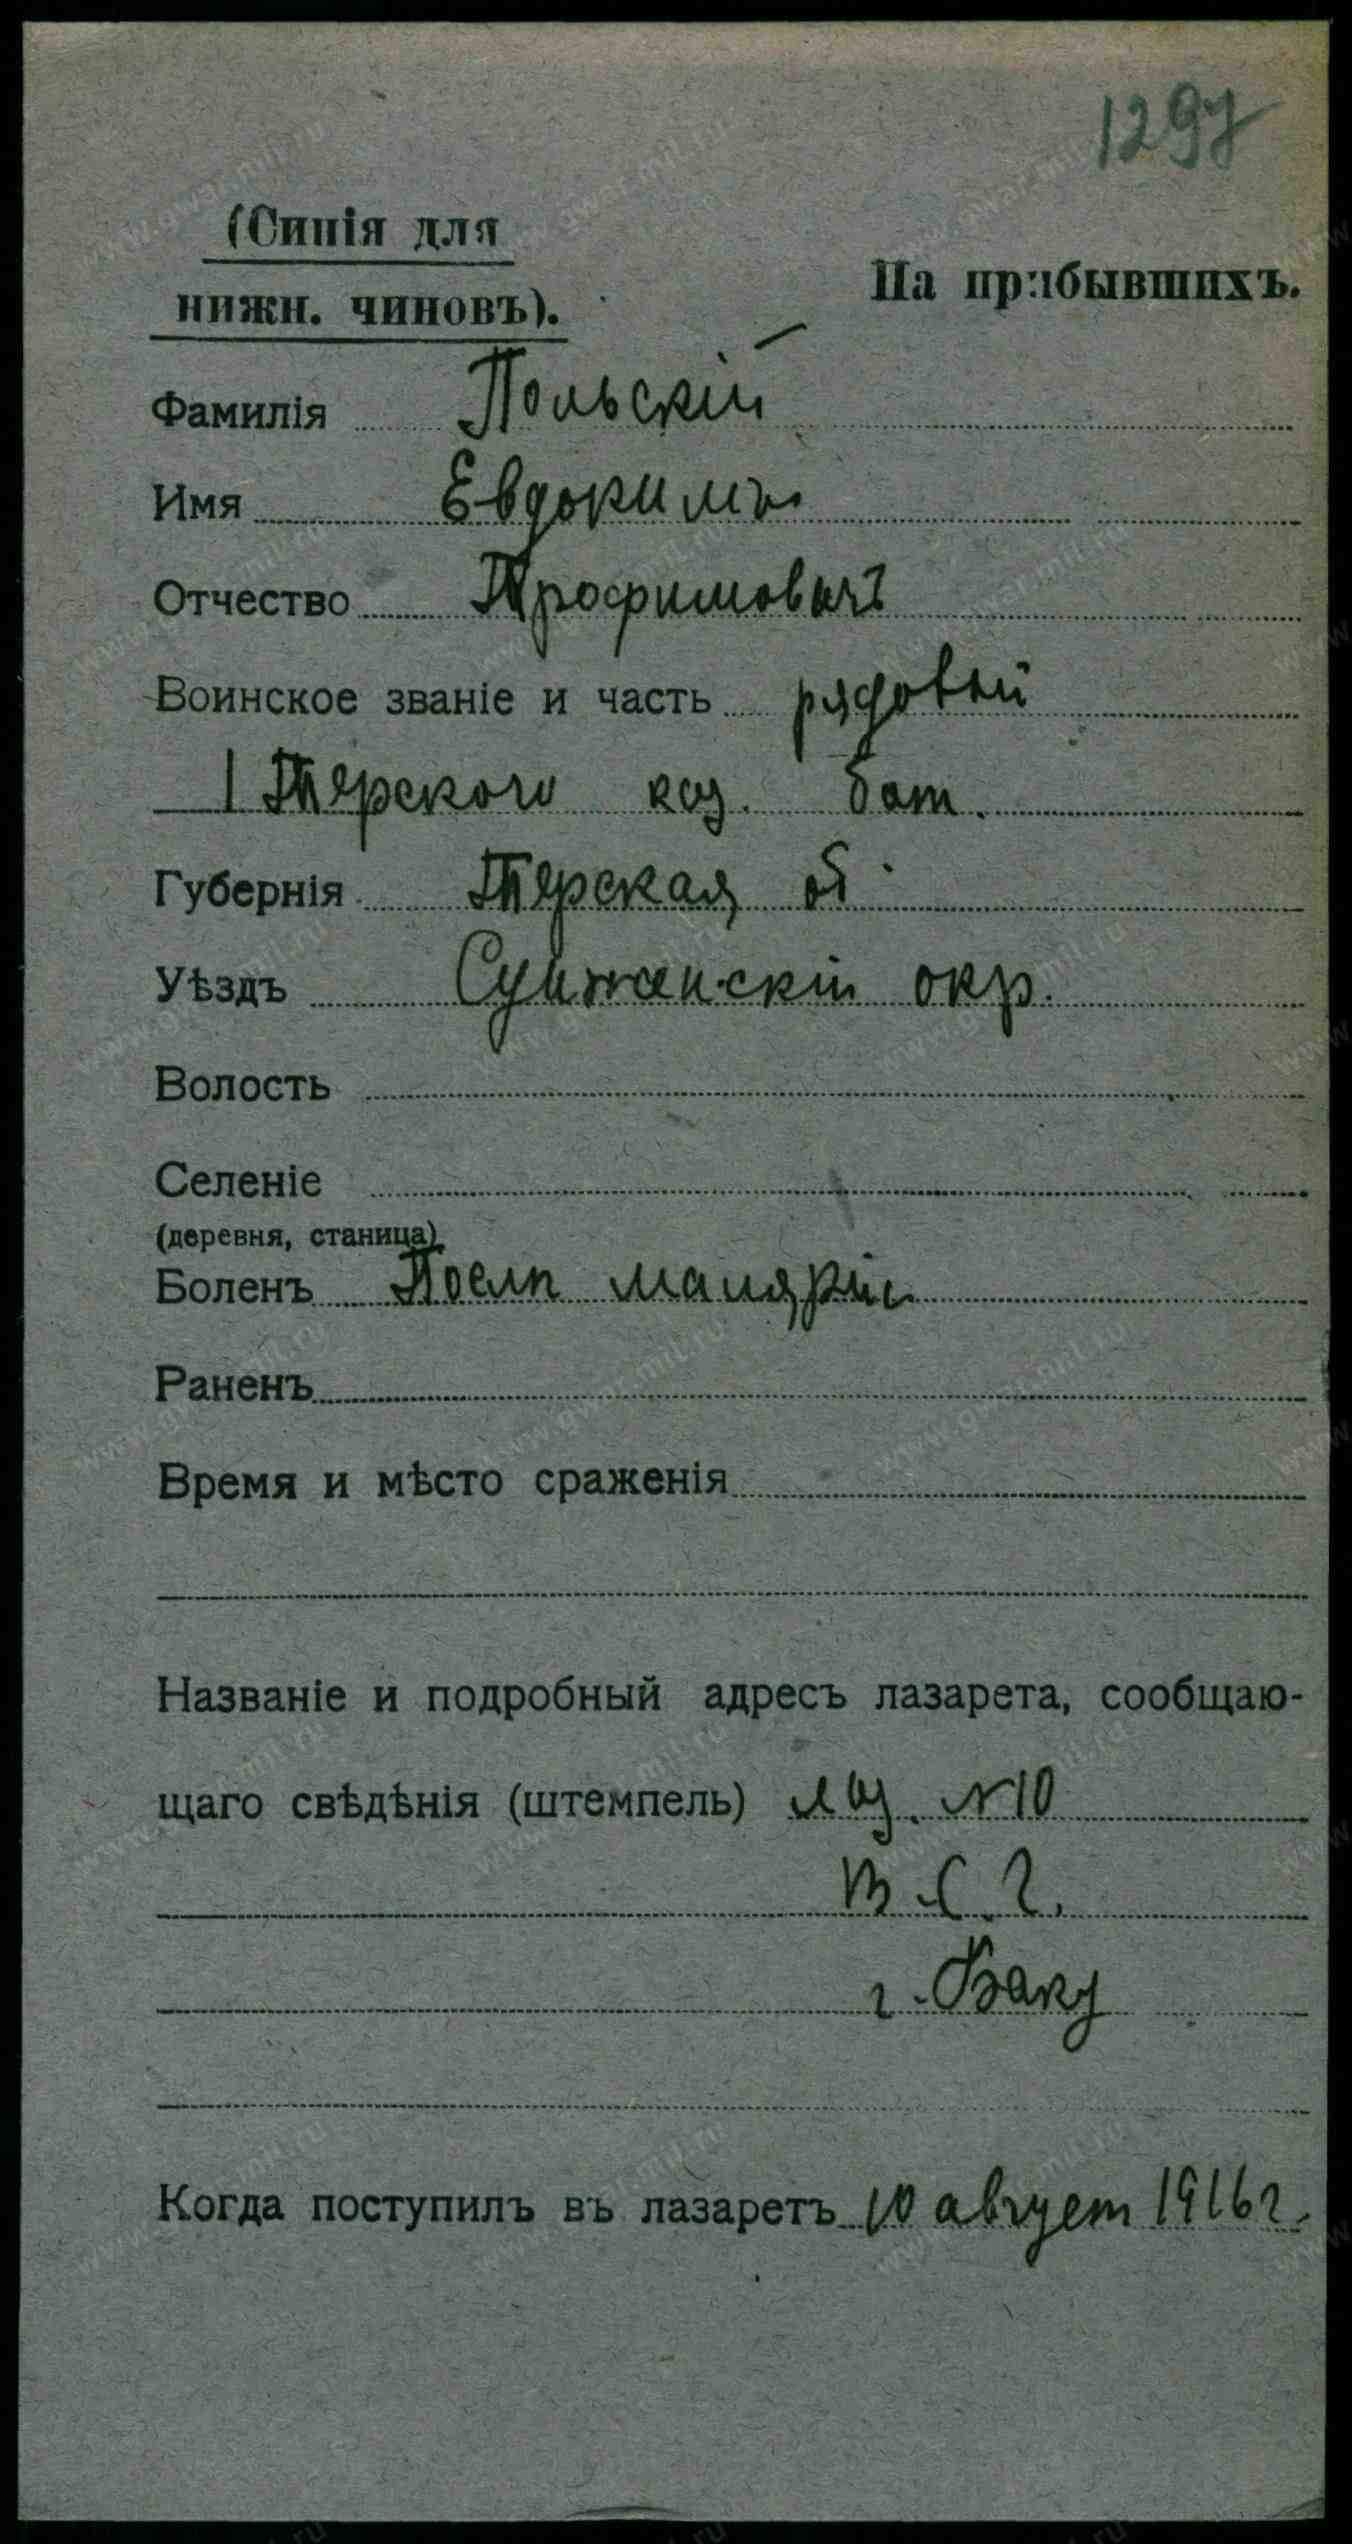 1297
(Синія для
нижн. чиновъ).
На прибывшихъ.
Фамилія Польскій
Имя Евдокимъ
Отчество Трофимовичъ
Воинское званіе и часть рядовый
1 Терского каз. бат.
Губернія Терская об.
Уѣздъ Сунженскій окр.
Волость
Селеніе
(деревня, станица)
Боленъ Посл маляріи
Раненъ
Время и мѣсто сраженія
Названіе и подробный адресъ лазарета, сообщаю-
щаго свѣдѣнія (штемпель) лаз. №10
В. С. Г.
г. Баку
Когда поступилъ въ лазаретъ 10 август 1916 г.